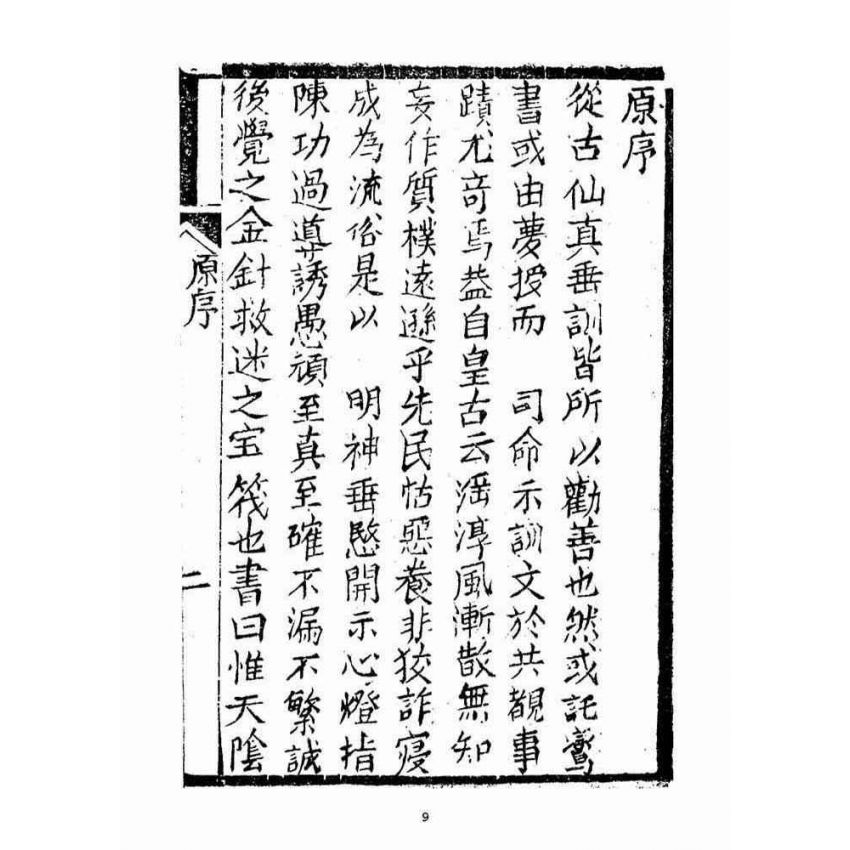 原序
從古仙真垂訓皆所以勸善也然或託鸞
書或由夢授而　司命示訓文於共覩事
蹟尤奇焉葢自皇古云遥淳風漸散無知
妄作質樸遠遜乎先民怙惡養非狡詐寖
成為流俗是以　明神垂愍開示心燈指
陳功過導誘愚頑至真至確不漏不繁誠
後覺之金針救迷之宝筏也書曰惟天陰
原序
二
9